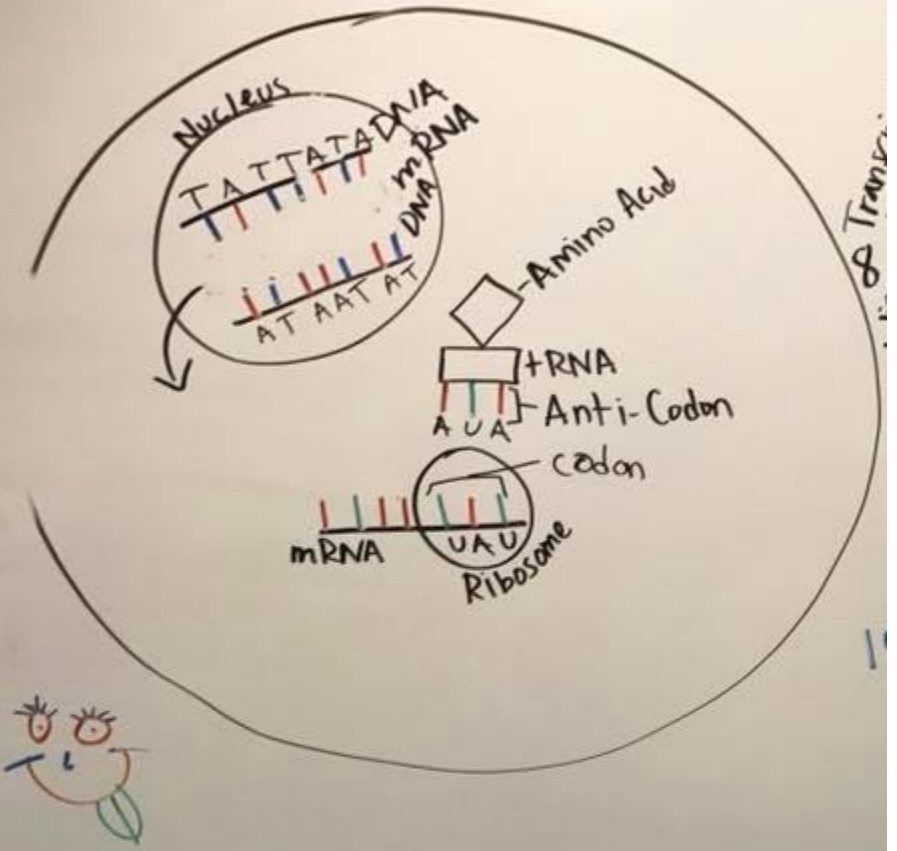 Nucleus
T A T T A T A DNA
mRNA
DNA
A T A A T A T
Amino Acid
tRNA
Anti-Codon
A U A
codon
mRNA
U A U
Ribosome
8